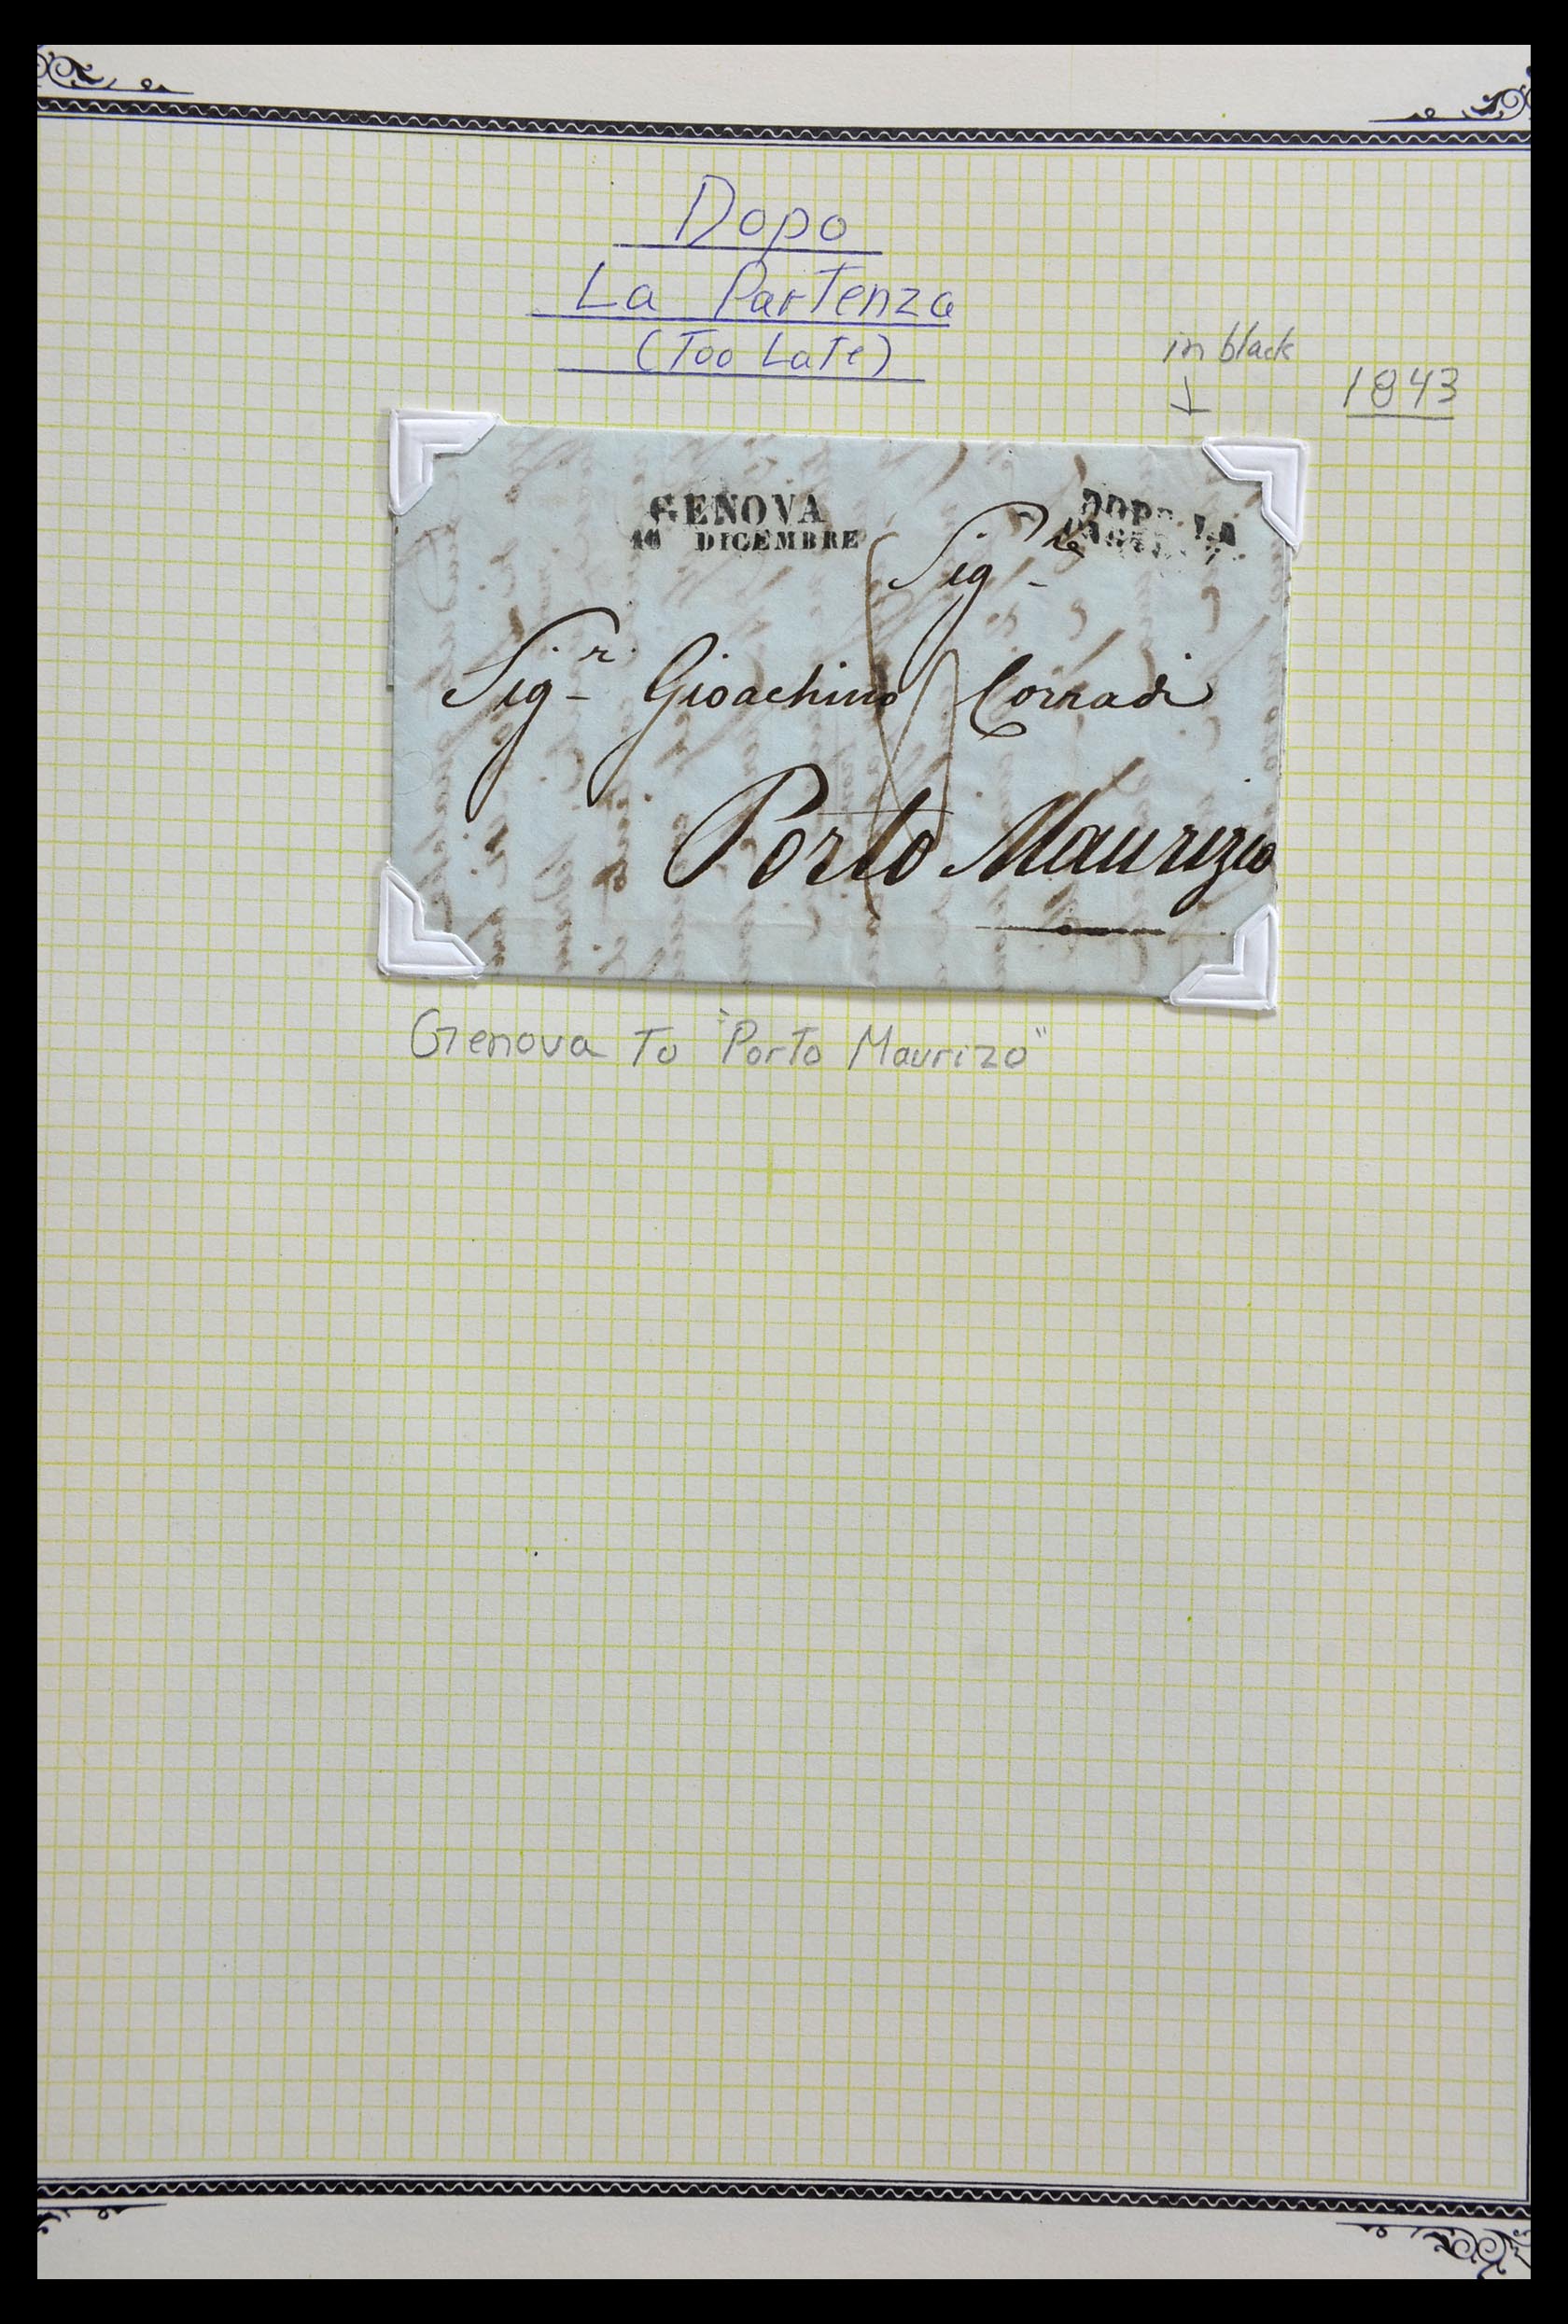 Dopo
La Partenza
(Too Late)
in black
1843
GENOVA
DICEMBRE
DOPO LA
Sig.re
Sig.r Gioachino Corradi
Porto Maurizio
Genova To "Porto Maurizo"